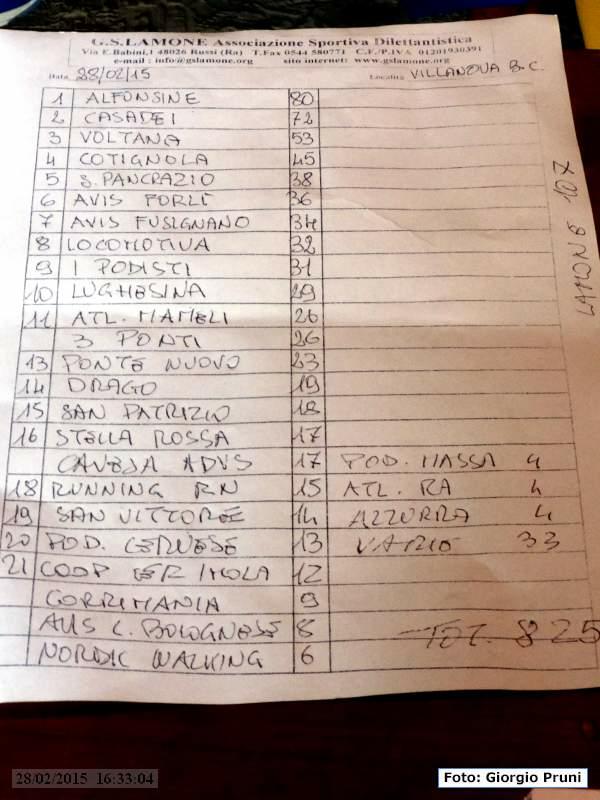 G.S.LAMONE Associazione Sportiva Dilettantistica
Via E.Babini,1 48026 Russi (Ra) T.Fax 0544 580771 C.F./P.IVA 01201930391
e-mail : info@gslamone.org sito internet: www.gslamone.org
Data 28/02/15 Località VILLANOVA B.C.
1 ALFONSINE 80
2 CASADEI 72
3 VOLTANA 53
4 COTIGNOLA 45
5 S.PANCRAZIO 38
6 AVIS FORLÌ 36
7 AVIS FUSIGNANO 34
8 LOCOMOTIVA 32
9 I PODISTI 31
10 LUGHESINA 29
11 ATL. MAMELI 26
3 PONTI 26
13 PONTE NUOVO 23
14 DRAGO 19
15 SAN PATRIZIO 18
16 STELLA ROSSA 17
CAVEJA ADVS 17 POD. MASSA 4
18 RUNNING RN 15 ATL. RA 4
19 SAN VITTORE 14 AZZURRA 4
20 POD. CERVESE 13 VARIE 33
21 COOP CER IMOLA 12
CORRIMANIA 9
AVIS C. BOLOGNESE 8 TOT. 825
NORDIC WALKING 6
LAMONE 107
28/02/2015 16:33:04
Foto: Giorgio Pruni